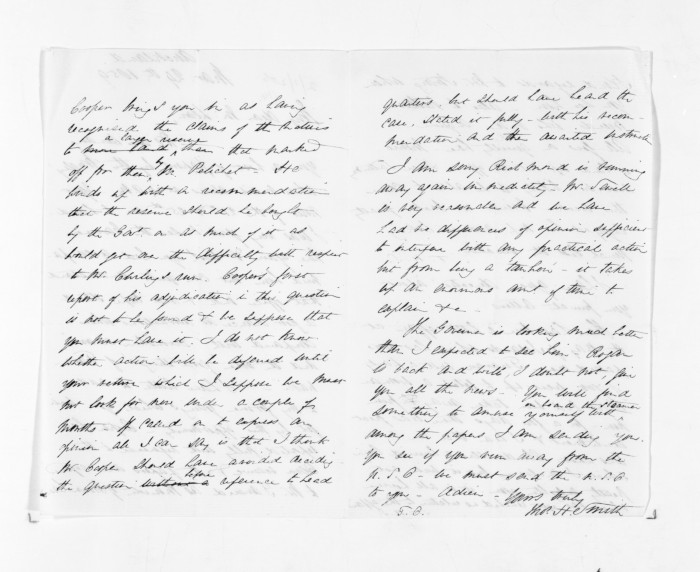 Cooper brings you in as having
recognised the claims of the Natives
to more land a larger reserve than that marked
off for them by Mr. Pelichet. He
winds up with a recommendation
that the reserve should be bought
by the Govt. or as much of it as
would get over the difficulty with respect
to Mr. Curling's run. Cooper's first
report of his adjudication in this question
is not to be found & he supposes that
you must have it. I do not know
whether action will be deferred until
your return which I suppose we must
not look for now under a couple of
months. If called on to express an
opinion all I can say is that I think
Mr. Cooper should have avoided deciding
the question without before a reference to head
quarters, but should have heard the
case, stated it fully with his recom-
mendation and the awaited instructns
I am sorry Richmond is running
away again immediately. Mr. Smith
is very reasonable and we have
had no differences of opinion sufficient
to interfere with any practical action
but from being a it takes
up an enormous amt of time to
explain &c.
The Governor is looking much better
than I expected to see him. Rogan
is back and will I doubt not give
you all the news. You will find
something to amuse yourself with on board the Steamer
among the papers I am sending you.
You see if you run away from the
N.S.O. we must send the N.S.O.
to you. Adieu. Yours truly
Thos. H. Smith